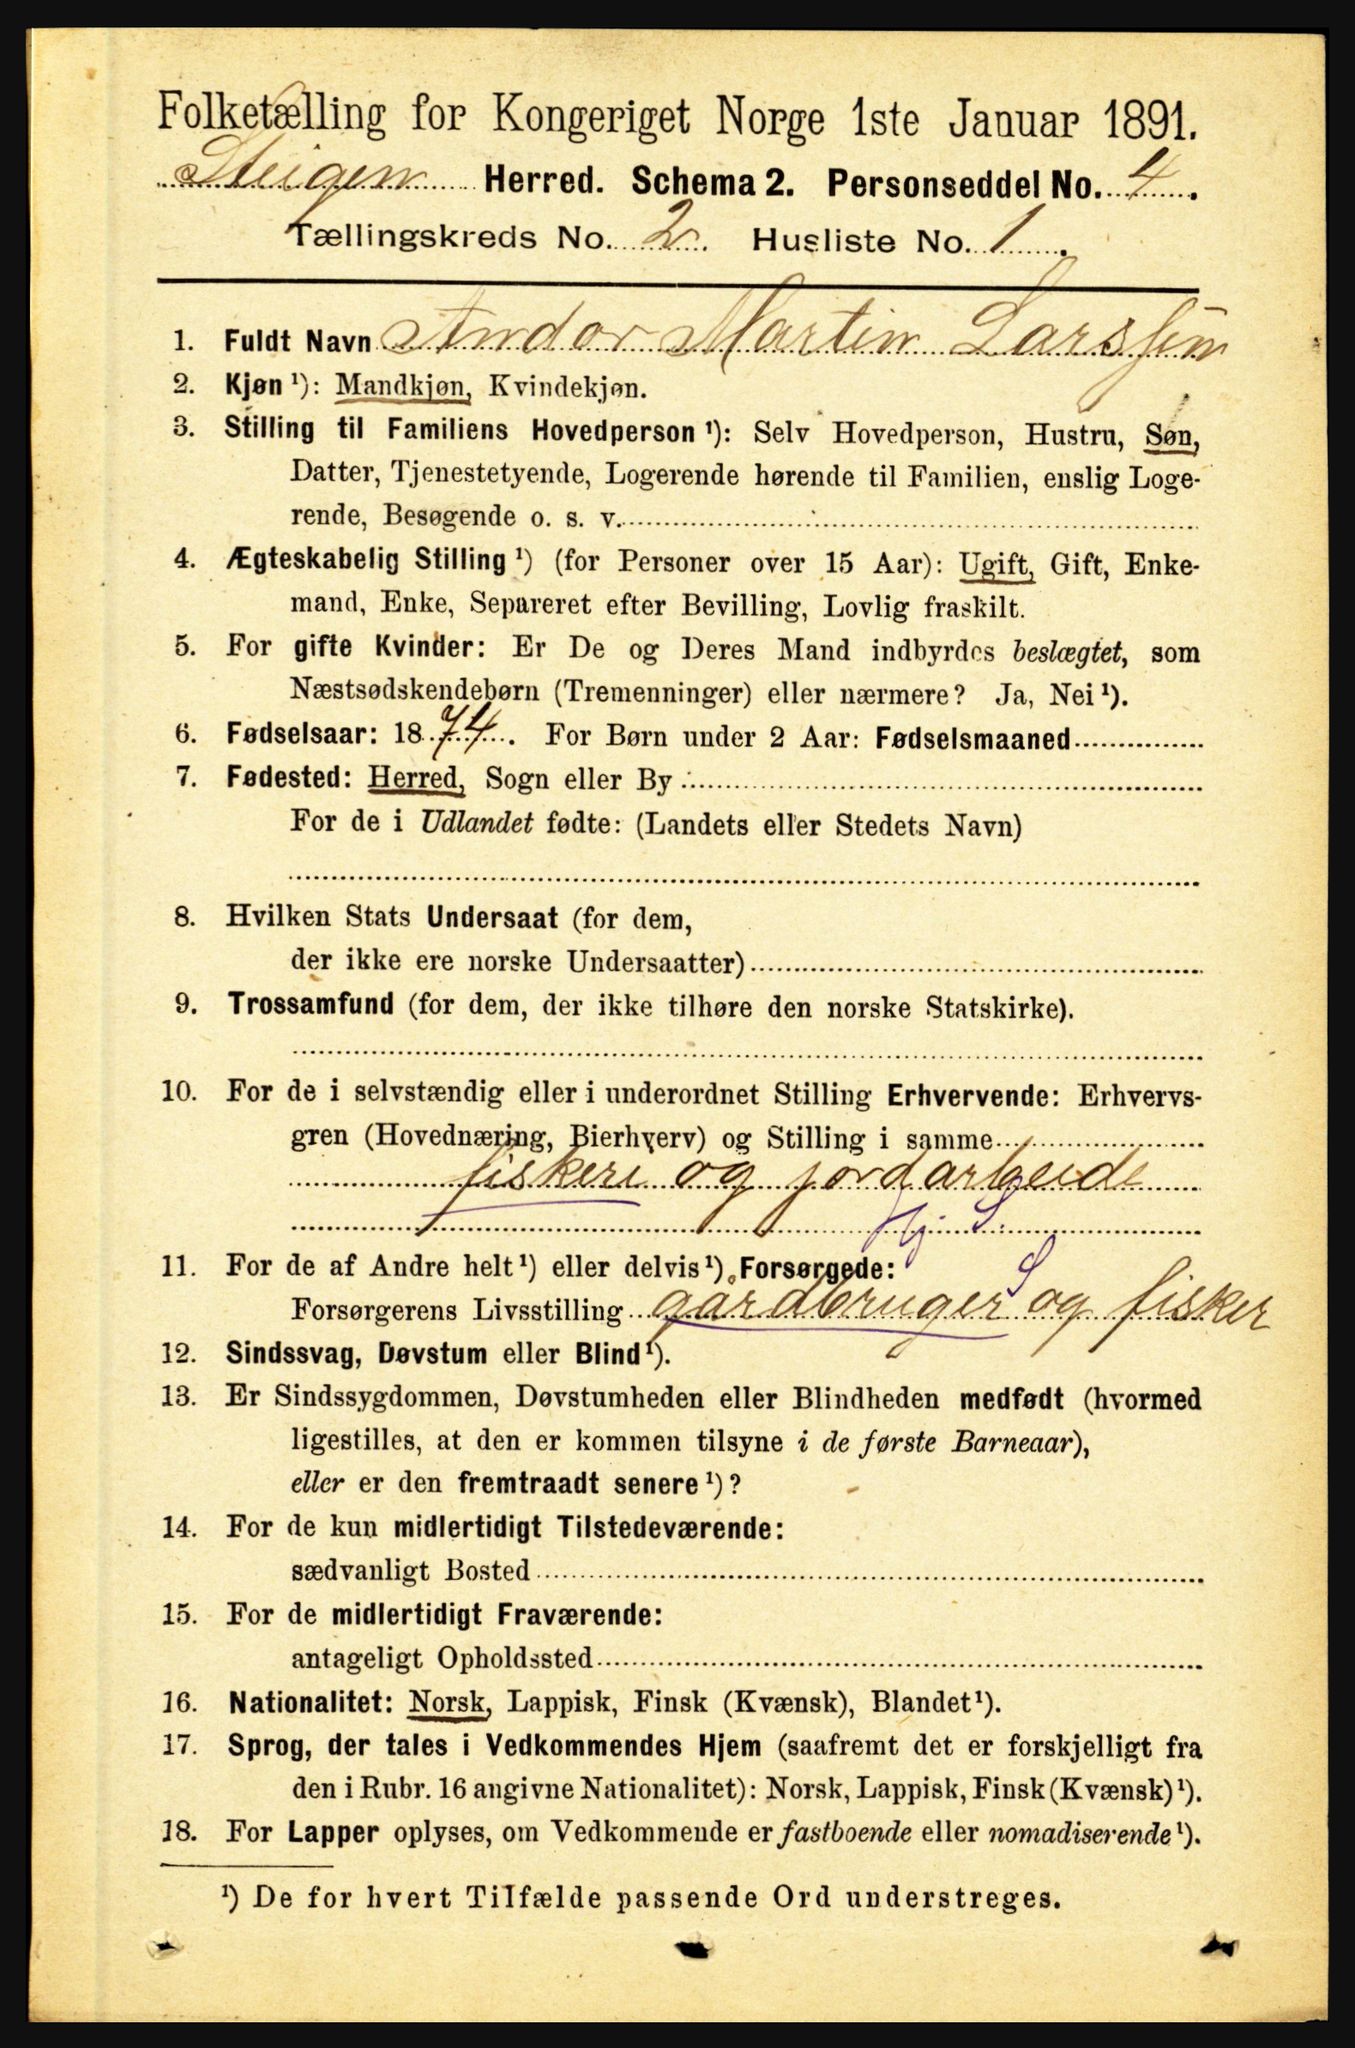 Folketælling for Kongeriget Norge 1ste Januar 1891.
Steigen Herred. Schema 2. Personseddel No. 4.
Tællingskreds No. 2. Husliste No. 1.
1. Fuldt Navn Andor Martin Larssen
2. Kjøn ¹): Mandkjøn, Kvindekjøn.
3. Stilling til Familiens Hovedperson ¹): Selv Hovedperson, Hustru, Søn,
Datter, Tjenestetyende, Logerende hørende til Familien, enslig Loge-
rende, Besøgende o. s. v.
4. Ægteskabelig Stilling ¹) (for Personer over 15 Aar): Ugift, Gift, Enke-
mand, Enke, Separeret efter Bevilling, Lovlig fraskilt.
5. For gifte Kvinder: Er De og Deres Mand indbyrdes beslægtet, som
Næstsødskendebørn (Tremenninger) eller nærmere? Ja, Nei ¹).
6. Fødselsaar: 1874. For Børn under 2 Aar: Fødselsmaaned
7. Fødested: Herred, Sogn eller By
For de i Udlandet fødte: (Landets eller Stedets Navn)
8. Hvilken Stats Undersaat (for dem,
der ikke ere norske Undersaatter)
9. Trossamfund (for dem, der ikke tilhøre den norske Statskirke).
10. For de i selvstændig eller i underordnet Stilling Erhvervende: Erhvervs-
gren (Hovednæring, Bierhverv) og Stilling i samme
fiskeri og jordarbeide
Hj. S.
11. For de af Andre helt ¹) eller delvis ¹) Forsørgede: S
Forsørgerens Livsstilling gardbruger og fisker
12. Sindssvag, Døvstum eller Blind ¹).
13. Er Sindssygdommen, Døvstumheden eller Blindheden medfødt (hvormed
ligestilles, at den er kommen tilsyne i de første Barneaar),
eller er den fremtraadt senere ¹)?
14. For de kun midlertidigt Tilstedeværende:
sædvanligt Bosted
15. For de midlertidigt Fraværende:
antageligt Opholdssted
16. Nationalitet: Norsk, Lappisk, Finsk (Kvænsk), Blandet ¹).
17. Sprog, der tales i Vedkommendes Hjem (saafremt det er forskjelligt fra
den i Rubr. 16 angivne Nationalitet): Norsk, Lappisk, Finsk (Kvænsk) ¹).
18. For Lapper oplyses, om Vedkommende er fastboende eller nomadiserende ¹).
¹) De for hvert Tilfælde passende Ord understreges.